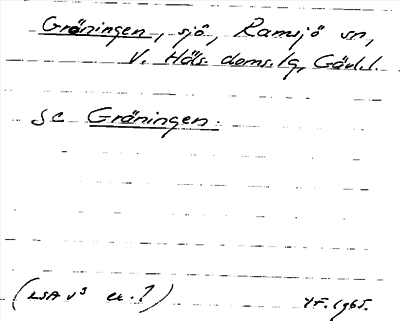 Gräningen, sjö, Ramsjö sn,
V. Häls. doms.lg, Gävl.l.
se Gräningen.
(LSA v3
YF. 1965.